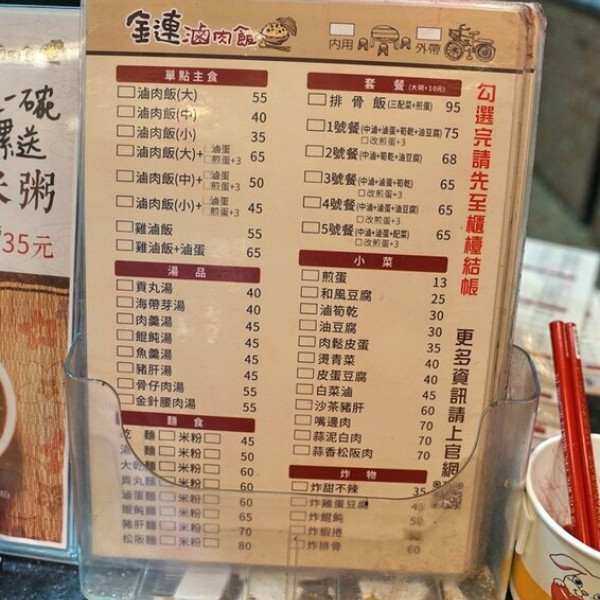 金連滷肉飯
內用 外帶
單點主食
滷肉飯(大) 55
滷肉飯(中) 40
滷肉飯(小) 35
滷肉飯(大)+ 滷蛋 煎蛋+3 65
滷肉飯(中)+ 滷蛋 煎蛋+3 50
滷肉飯(小)+ 滷蛋 煎蛋+3 45
雞滷飯 55
雞滷飯+滷蛋 65
湯品
貢丸湯 40
海帶芽湯 40
肉羹湯 45
餛飩湯 45
魚羹湯 45
豬肝湯 45
骨仔肉湯 55
金針腰肉湯 55
麵食
乾麵 米粉 45
湯麵 米粉 50
大乾麵 米粉 60
貢丸麵 米粉 60
滷蛋麵 米粉 60
餛飩麵 米粉 65
豬肝麵 米粉 70
松阪麵 米粉 80
套餐(大碗+10元)
排骨飯(三配菜+煎蛋) 95
1號餐(中滷+滷蛋+筍乾+油豆腐) 75
改煎蛋+3
2號餐(中滷+筍乾+油豆腐) 68
3號餐(中滷+滷蛋+筍乾) 65
改煎蛋+3
4號餐(中滷+滷蛋+油豆腐) 65
改煎蛋+3
5號餐(中滷+滷蛋+配菜) 65
改煎蛋+3
小菜
煎蛋 13
和風豆腐 25
滷筍乾 30
油豆腐 30
肉鬆皮蛋 35
燙青菜 40
皮蛋豆腐 40
白菜滷 45
沙茶豬肝 60
嘴邊肉 70
蒜泥白肉 70
蒜香松阪肉 70
炸物
炸甜不辣 35
炸雞蛋豆腐
炸餛飩 50
炸蝦捲 60
炸排骨 60
勾選完請先至櫃檯結帳
更多資訊請上官網
一碗
送
粥
35元